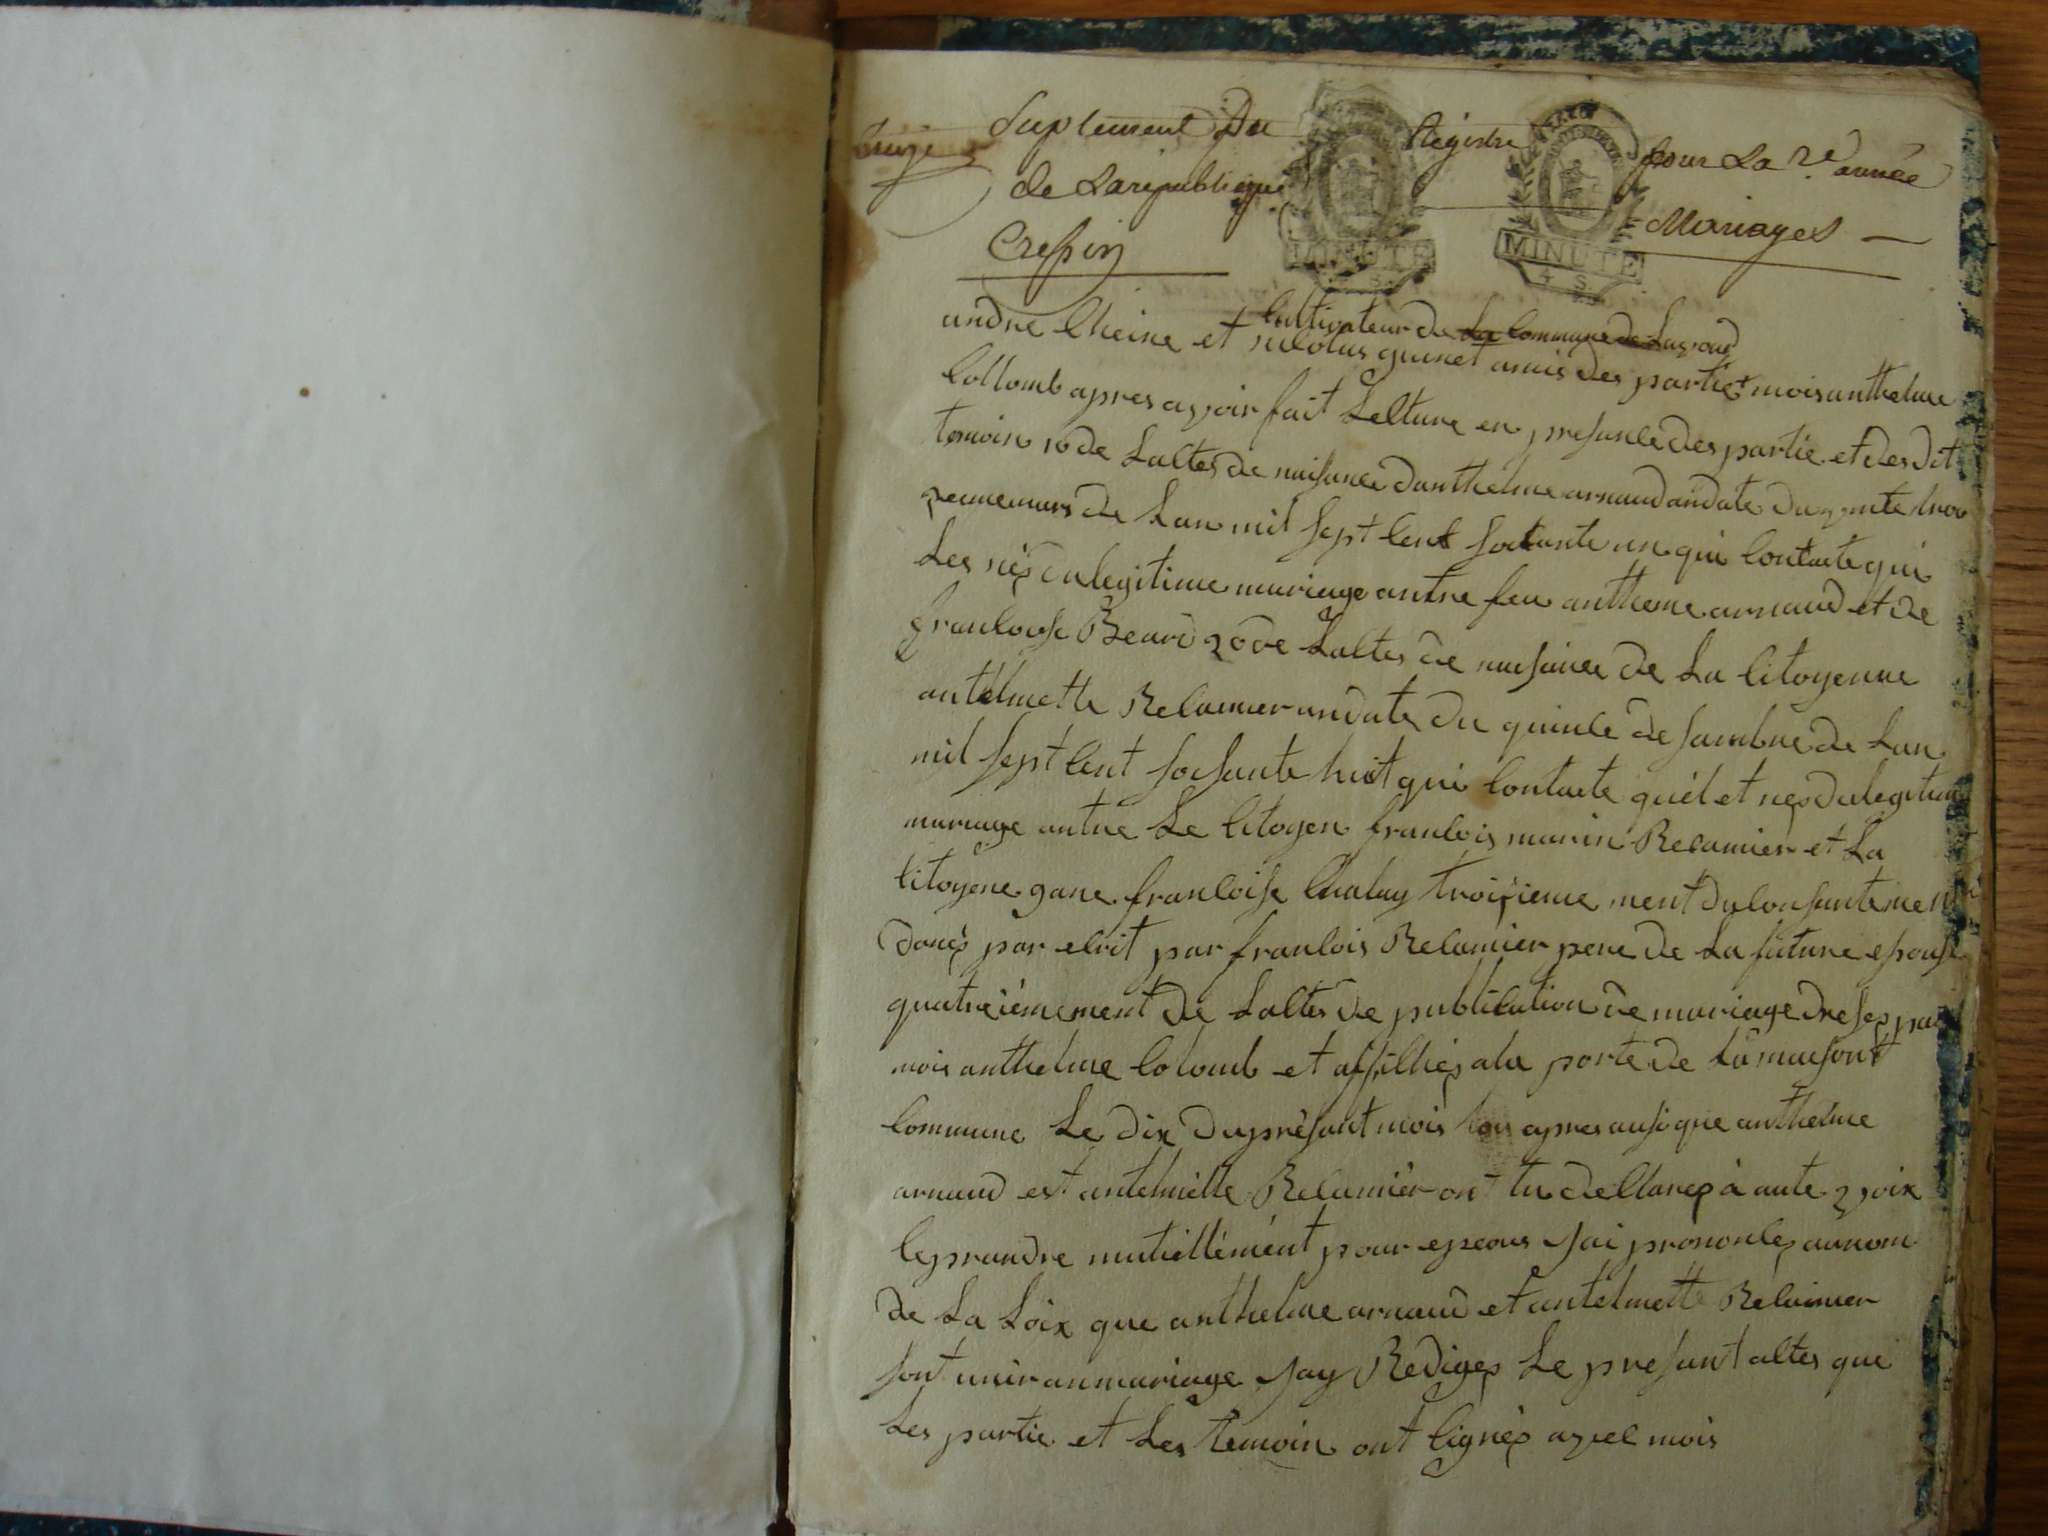 Suplement Du Régistre pour La 2e. année
de La république
Mariages
Crespin
MINUTE
MINUTE
4 S
Cultivateur de La Commune de
andre Cheine et nicolas guinet amis des partie mois anthelme
Collomb apres avoir fait Lecture en presance des partie et des dit
temoin 1o de Lactes de naisance danthelme arnaud andate du
de Lan mil sept cent un qui contacte qui
Les nés du legitime mariage antre feu antheme arnaud et de
francoise Beard 2o de Lactes de naisance de La Citoyenne
antelmette Recamier andate du quince desambre de Lan
mil sept cent soisante huit qui contacte quél et nes du legitime
mariage antre Le Citoyen francois marin Recamier et La
Citoyene gane francoise Chalay troisieme ment du consantement
donés par ecrit par francois Recamier pere de La future epouse
quatreiémement de Lactes de publication de mariage dreses par
mois anthelme Colomb et affichés ala porte de La maisont
Commune Le dix du présant mois apres ausi que anthelme
arnaud est antelmette Recamier ont tu declares à aute voix
ce prandre mutuellément pour epeous Jai prononces aunom
de La Loix que anthelme arnaud et antelmette Recaimer
sont unir an mariage Jay Rediges Le presant actes que
Les partie et Les temoin ont Cignés avec mois